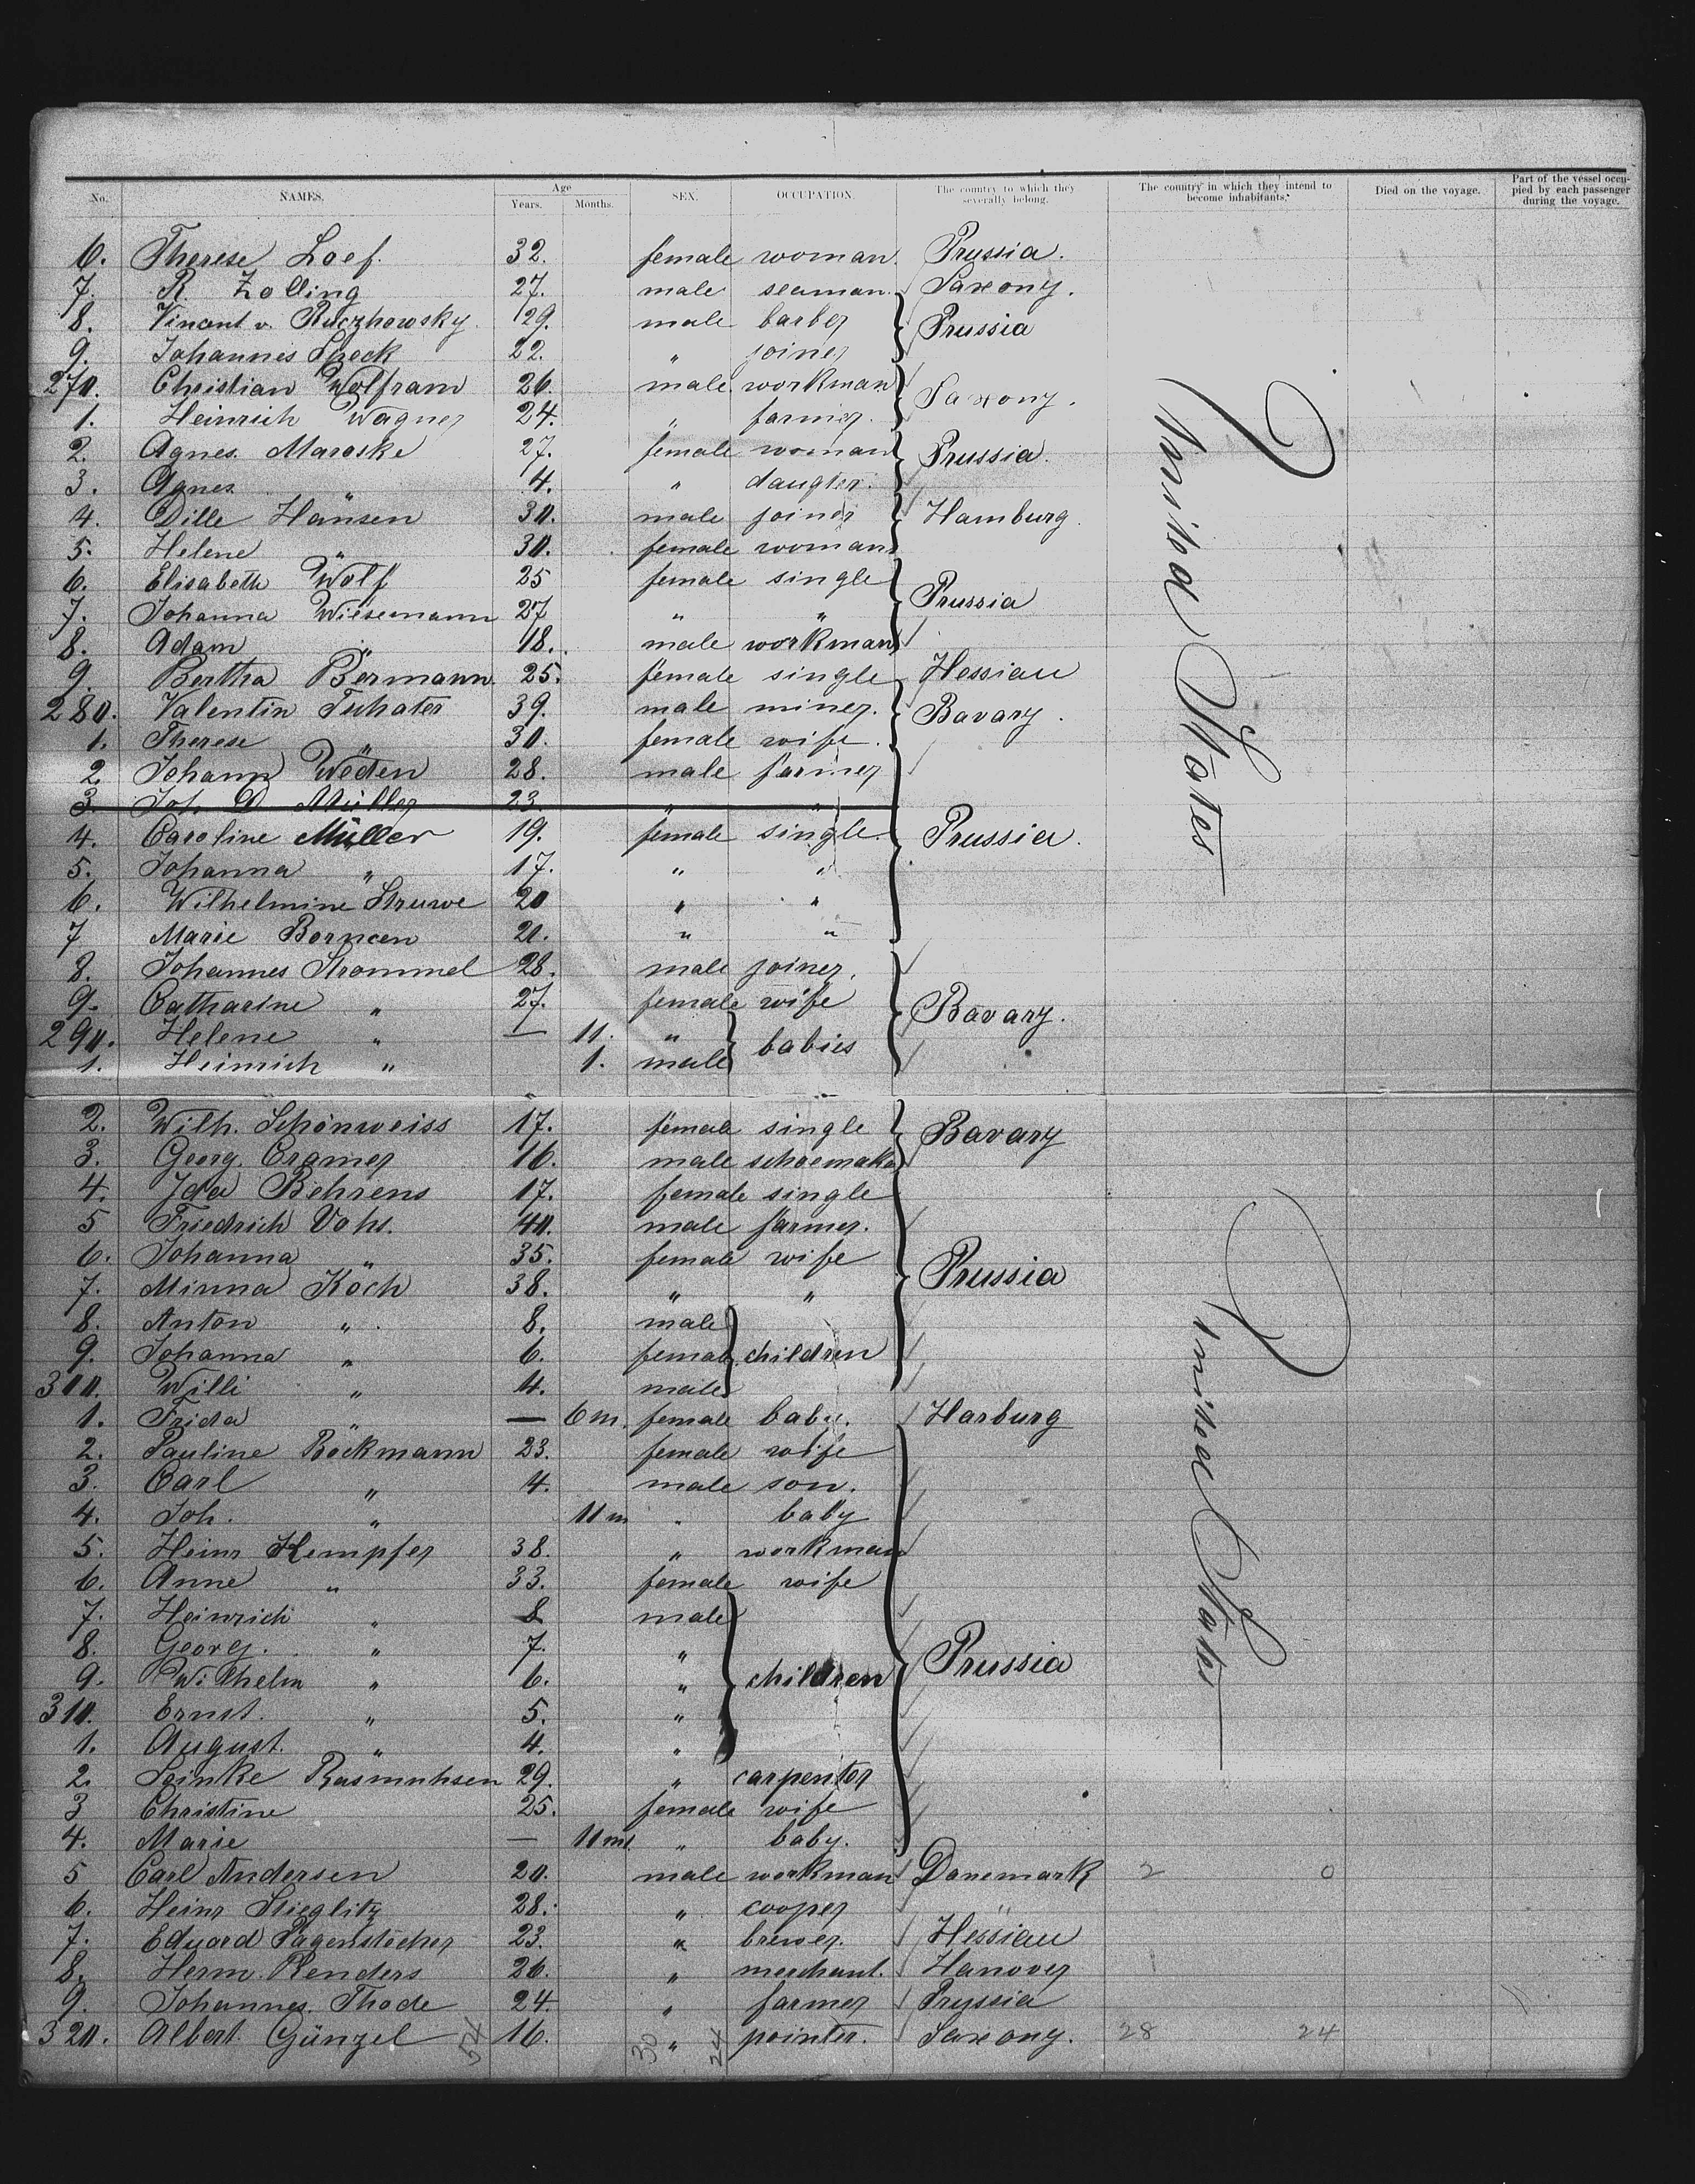 No. NAMES. Age Years. Months. SEX. OCCUPATION. The country to which they severally belong. The country in which they intend to become inhabitants. Died on the voyage. Part of the vessel occupied by each passenger during the voyage.
6. Therese Loef. 32. female woman. Prussia.
7. R. Zolling 27. male seaman. Saxony.
8. Vincent v. Ruczhowsky. 29. male barber Prussia
9. Johannes Speck 22. " joiner
270. Christian Wolfram 26. male workman Saxony.
1. Heinrich Wagner 24. " farmer.
2. Agnes Maroske 27. female woman Prussia.
3. Agnes " 4. " daugter.
4. Dille Hansen 30. male joiner Hamburg.
5. Helene " 30. female woman
6. Elisabeth Wolf 25 female single Prussia
7. Johanna Wiesemann 27 " "
8. Adam " 18. male workman
9. Bertha Bermann. 25. female single Hessian
280. Valentin 39. male miner. Bavary.
1. Therese " 30. female wife.
2. Johann Woden 28. male farmer
3. Joh. D. Müller 23. " "
4. Caroline Müller 19. female single. Prussia.
5. Johanna " 17. " "
6. Wilhelmine Struwe 20 " "
7 Marie Borncen 20. " "
8. Johannes Strommel 28. male joiner.
9. Catharine " 27. female wife Bavary.
290. Helene " — 11. " babies
1. Heinrich " 1. male
2. Wilh. Schonweiss 17. female single Bavary
3. Georg. Cramer 16. male schoemaker
4. Ida Behrens 17. female single
5 Friedrich Vohs. 40. male farmer.
6. Johanna " 35. female wife Prussia
7. Minna Koch 38. " "
8. Anton " 8. male children
9. Johanna " 6. female
300. Willi " 4. male
1. Frida " — 6 m. female baby. Harburg
2. Pauline Böckmann 23. female wife
3. Carl " 4. male son.
4. Joh. " 11 m " baby
5. Heinr Kempfer 38. " workman
6. Anne " 33. female wife
7. Heinrich " 8 male children
8. Georg. " 7. " Prussia
9. Wilhelm " 6. "
310. Ernst. " 5. "
1. August. " 4. "
2. Rasmuhsen 29. " carpenter
3 Christine 25. female wife
4. Marie — 11 m " baby.
5 Carl Andersen 20. male workman Danemark 2 0
6. Heinr Stieglitz 28. " cooper "
7. Eduard Pagenstecher 23. " brewer. Hessian
8. Herm. Renders 26. " merchant. Hanover
9. Johannes. Thode 24. " farmer Prussia
320. Albert Günzel 54 16. 30 " 24 pointer. Saxony. 28 24
United States
United States